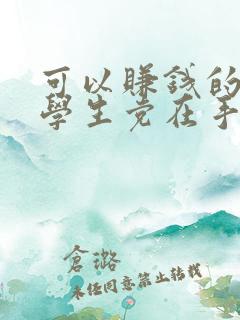 可以賺錢的
學生党在手
倉璐
未经同意禁止转载